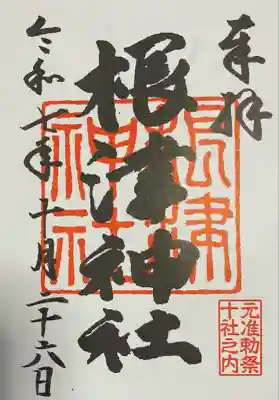 奉拝
根津神社
根津神社
元准勅祭
十社之内
令和七年十月二十六日